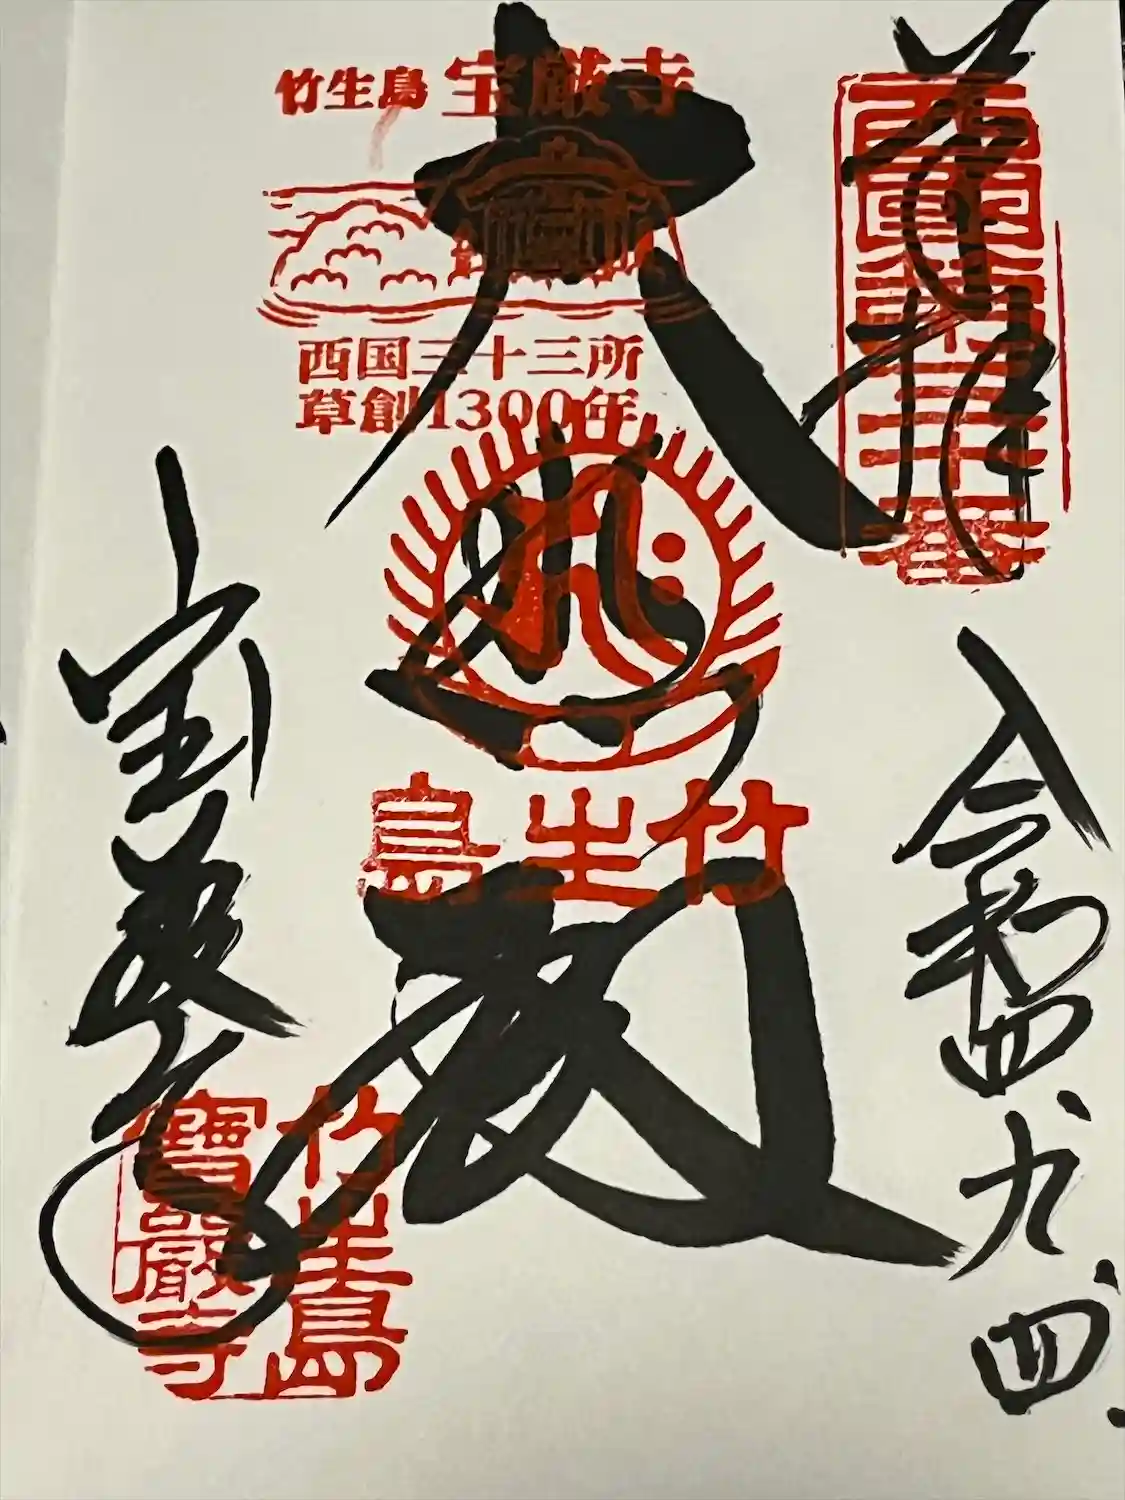 奉拝
西国第三十番
令和四、九、四、
竹生島 宝厳寺
西国三十三所
草創1300年
大
竹生島
宝厳寺
竹生島
寶嚴寺